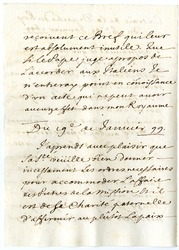 reçoivent ce Bref qui leur
est absolument inutile. Que
si le Pape juge a propos de
l'accorder aux Italiens Je
n'entreray point en connoissance
d'un acte qui ne peut avoir
aucun effet dans mon Royaume

Du 19.e de Janvier 99.

J'aprends avec plaisir que
Sa S.té veuille bien donner
incessament les ordres necessaires
pour accommoder l'affaire
des de la Mission. Il
est de sa Charité paternelle
d'affermir au plûtost la paix